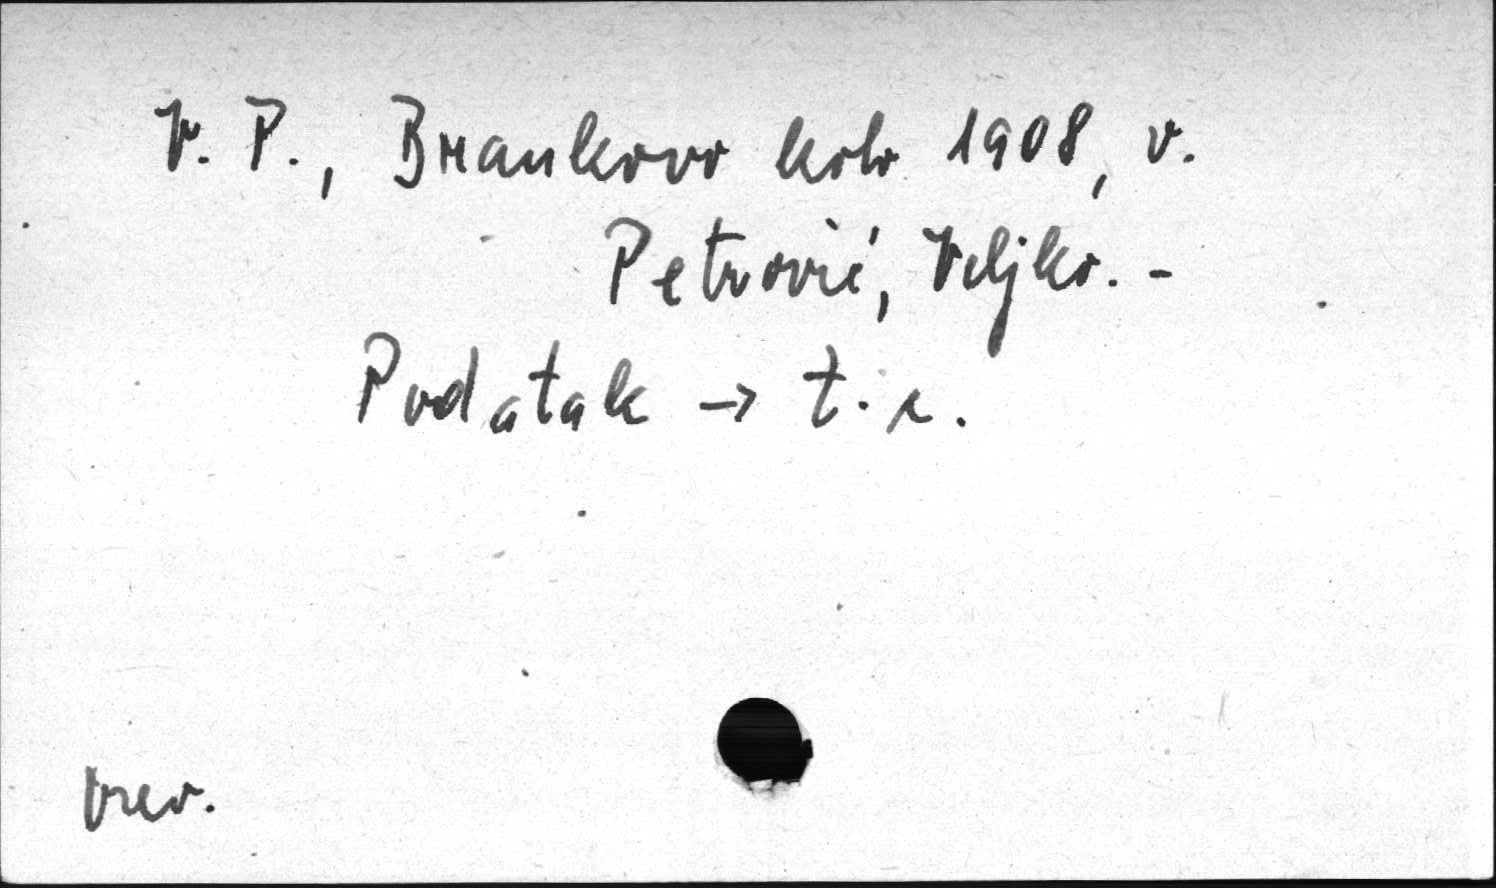 V. P., Brankovo kolo 1908, v.
Petrović, Veljko. -
Podatak → t. r.